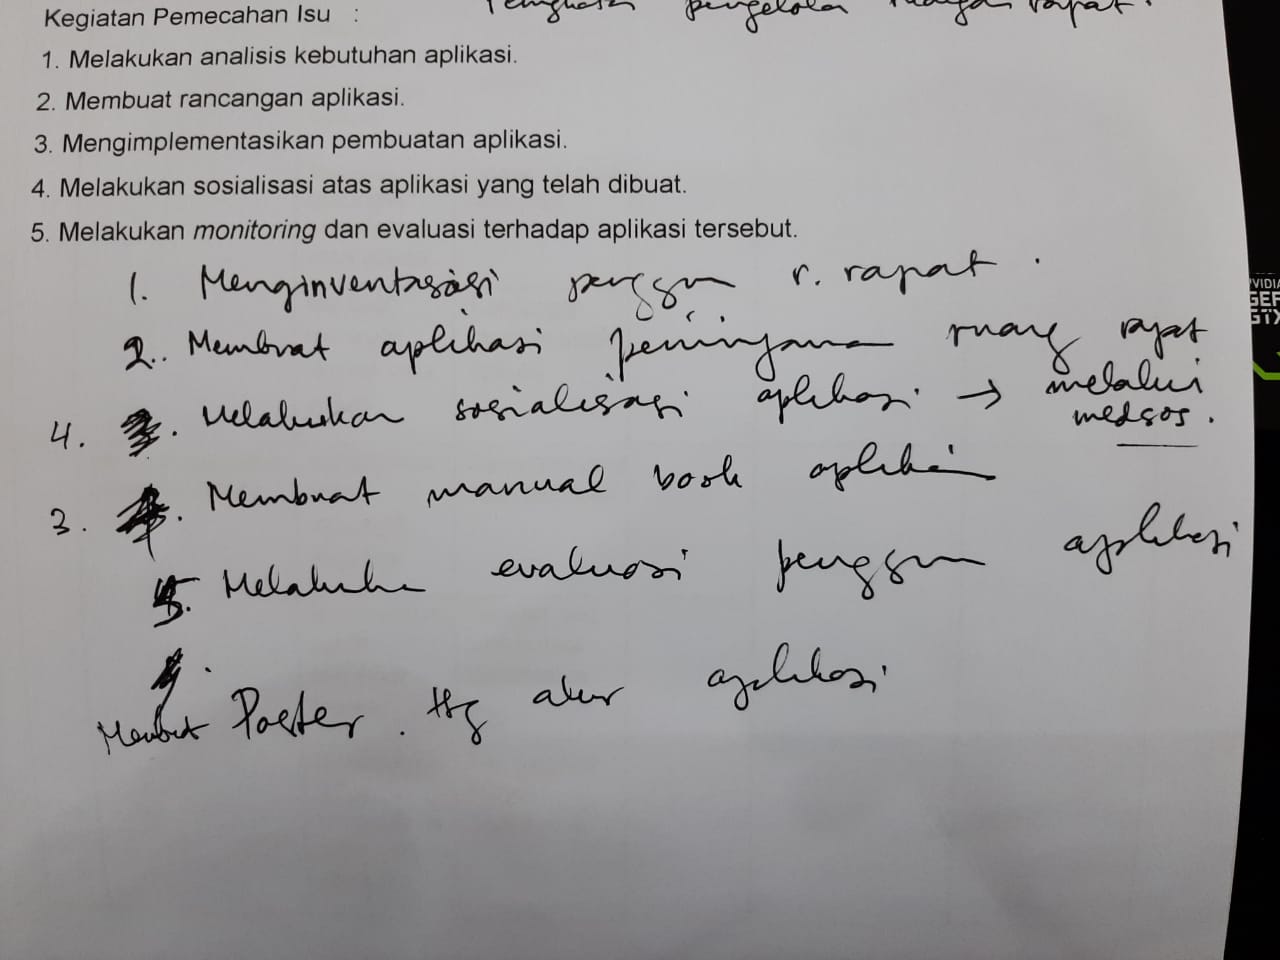 Kegiatan Pemecahan Isu : pengelola rapat.
1. Melakukan analisis kebutuhan aplikasi.
2. Membuat rancangan aplikasi.
3. Mengimplementasikan pembuatan aplikasi.
4. Melakukan sosialisasi atas aplikasi yang telah dibuat.
5. Melakukan monitoring dan evaluasi terhadap aplikasi tersebut.
1. Menginventasisi r. rapat.
2. Membuat aplikasi ruang rapat
4. Melakukan sosialisasi aplikasi → melalui
medsos.
3. Membuat manual book aplikasi
5. evaluasi aplikasi
Poster. alur aplikasi
VIDIA
GEF
GTX